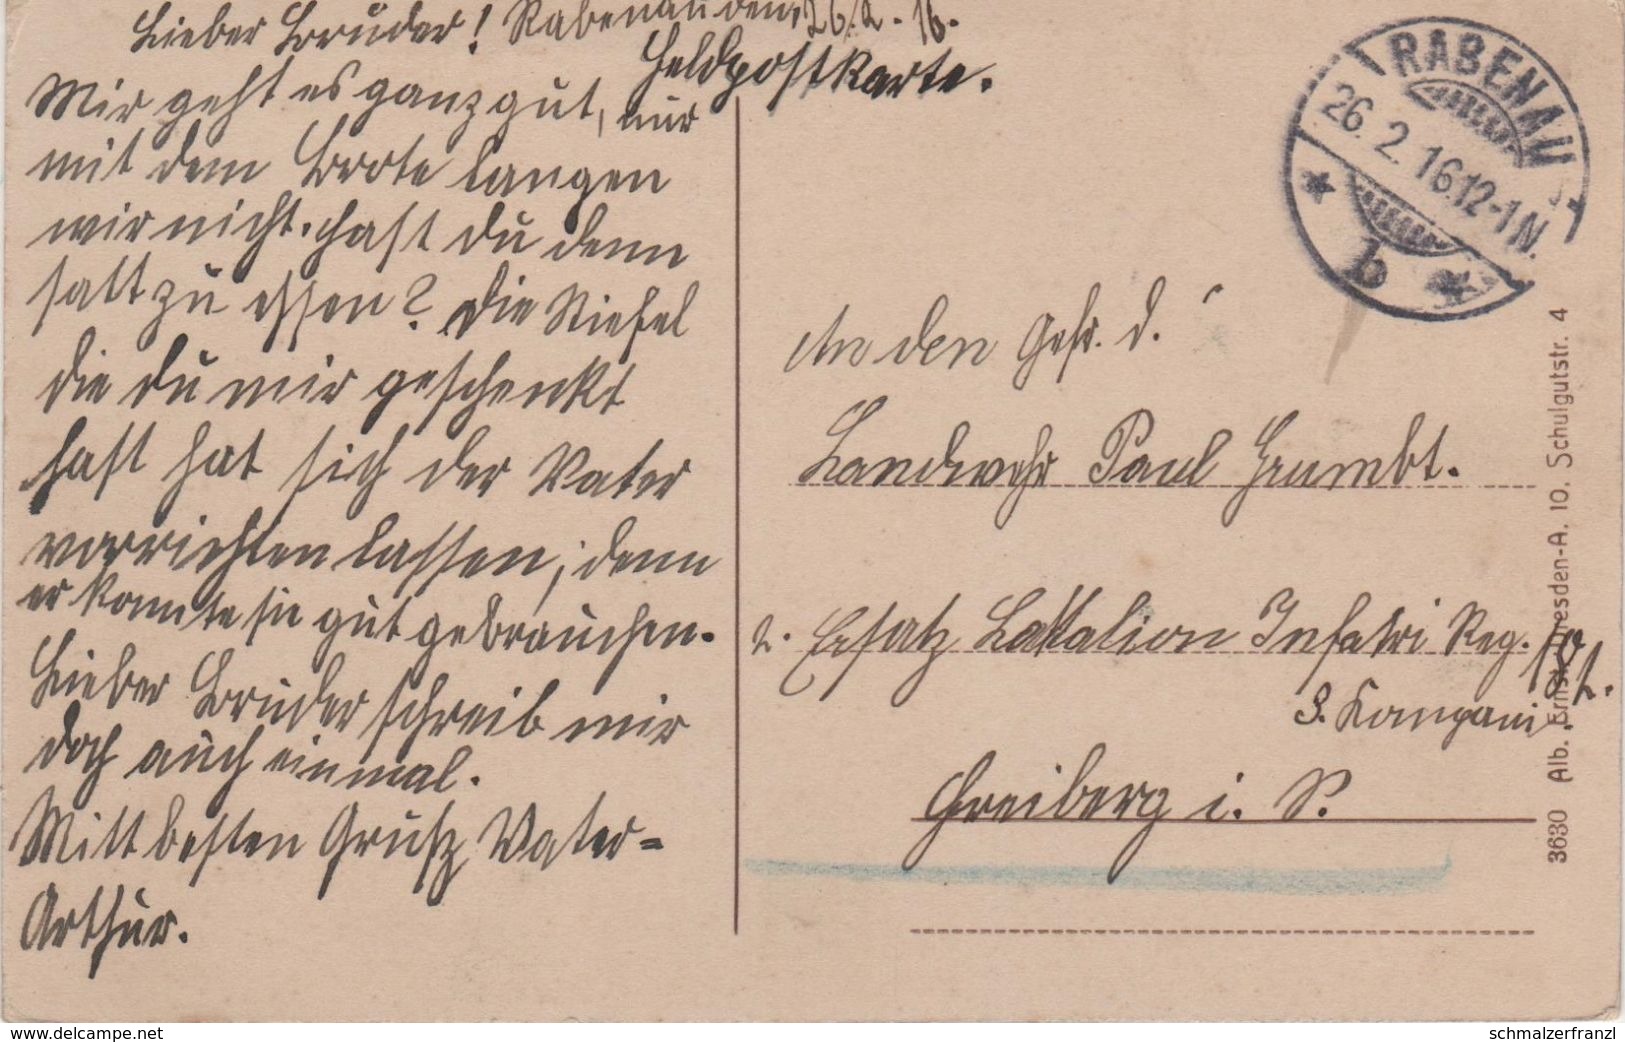 Lieber Bruder! Rabenau den, 26.2.16.
Feldpostkarte.
Mir geht es ganz gut, nur
mit dem Brote langen
wir nicht. hast du denn
satt zu essen? Die Stiefel
die du mir geschenkt
hast hat sich der Vater
vorrichten lassen, denn
er konnte sie gut gebrauchen.
Lieber Bruder schreib mir
doch auch einmal.
Mitt besten Gruß Vater=
Arthur.
RABENAU
26. 2. 16. 12-1 N.
* b *
An den Gefr. d.
Landwehr Paul Grumbt.
2. Ersatz Battalion Infatri Reg.
3. Kompani
Freiberg i. S.
3630 Alb. Ernst, Dresden-A. 10. Schulgutstr. 4
www.delcampe.net
schmalzerfranzl